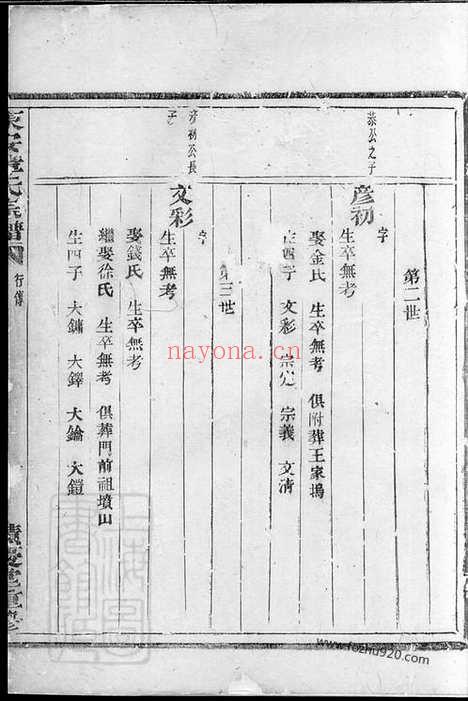 恭公之子
第二世
彦初
字
生卒無考
娶金氏 生卒無考 俱附葬王家塢
生四子 文彩 宗 宗義 文清
彦初公長
子
第三世
文彩
字
生卒無考
娶錢氏 生卒無考
繼娶徐氏 生卒無考 俱葬門前祖墳山
生四子 大鏞 大鐸 大鑰 大鎧
氏宗譜
行傳
nayona.cn
www.fozhu920.com